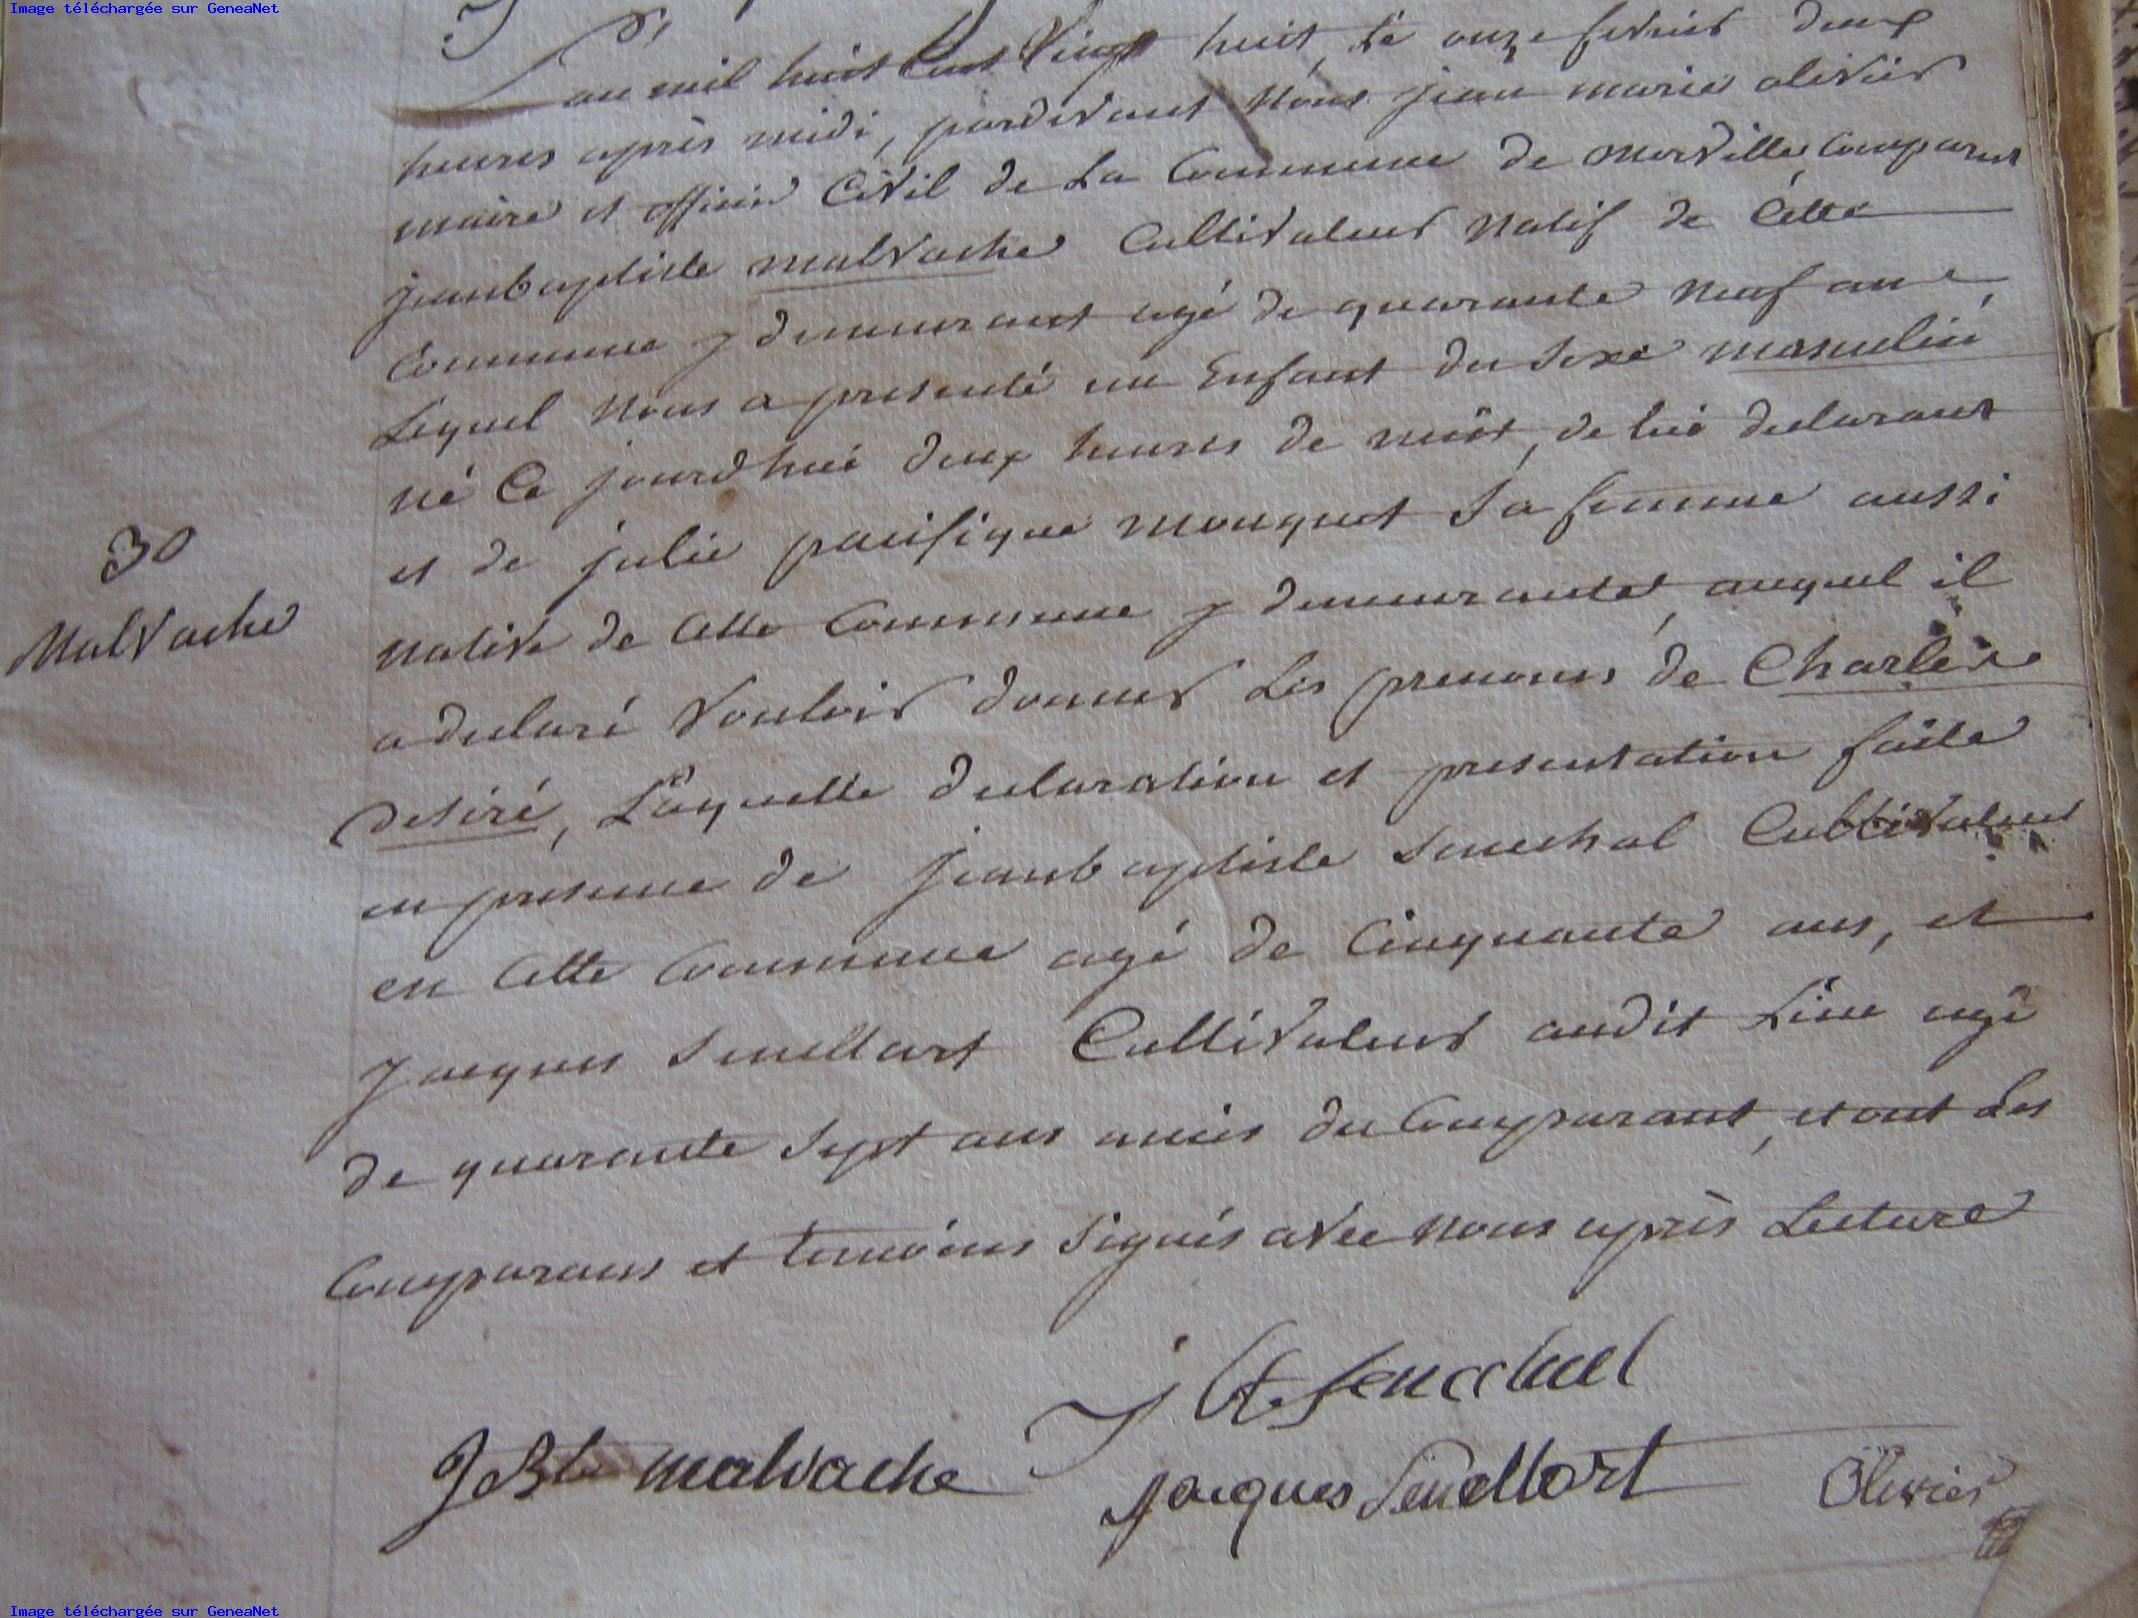 Image téléchargée sur GeneaNet
L'an mil huit Cent Vingt huit, Le onze fevrier deux
heures après midi, pardevant Nous jean marie olivier
maire et officier Civil de La Commune de morville, Comparut
jeanbaptiste malvache Cultivateur Natif de Cette
Commune y demeurant agé de quarante neuf ans,
Lequel Nous a presenté un Enfant du sexe masculin,
né Ce jourdhui deux heures de nuit, de lui declarant
et de julie pacifique mouquet sa femme aussi
native de Cette Commune y demeurante, auquel il
a declaré Vouloir donner Les prenoms de Charles
desiré, Laquelle declaration et presentation faite
en presence de jeanbaptiste senechal Cultivateur
en Cette Commune agé de Cinquante ans, et
jacques senellart Cultivateur audit Lieu agé
de quarante sept ans amis du Comparant, et ont Les
Comparans et temoins signés avec Nous après Lecture
30
Malvache
J Bte senechal
J Bte malvache
jacques senellart
Olivier
Image téléchargée sur GeneaNet